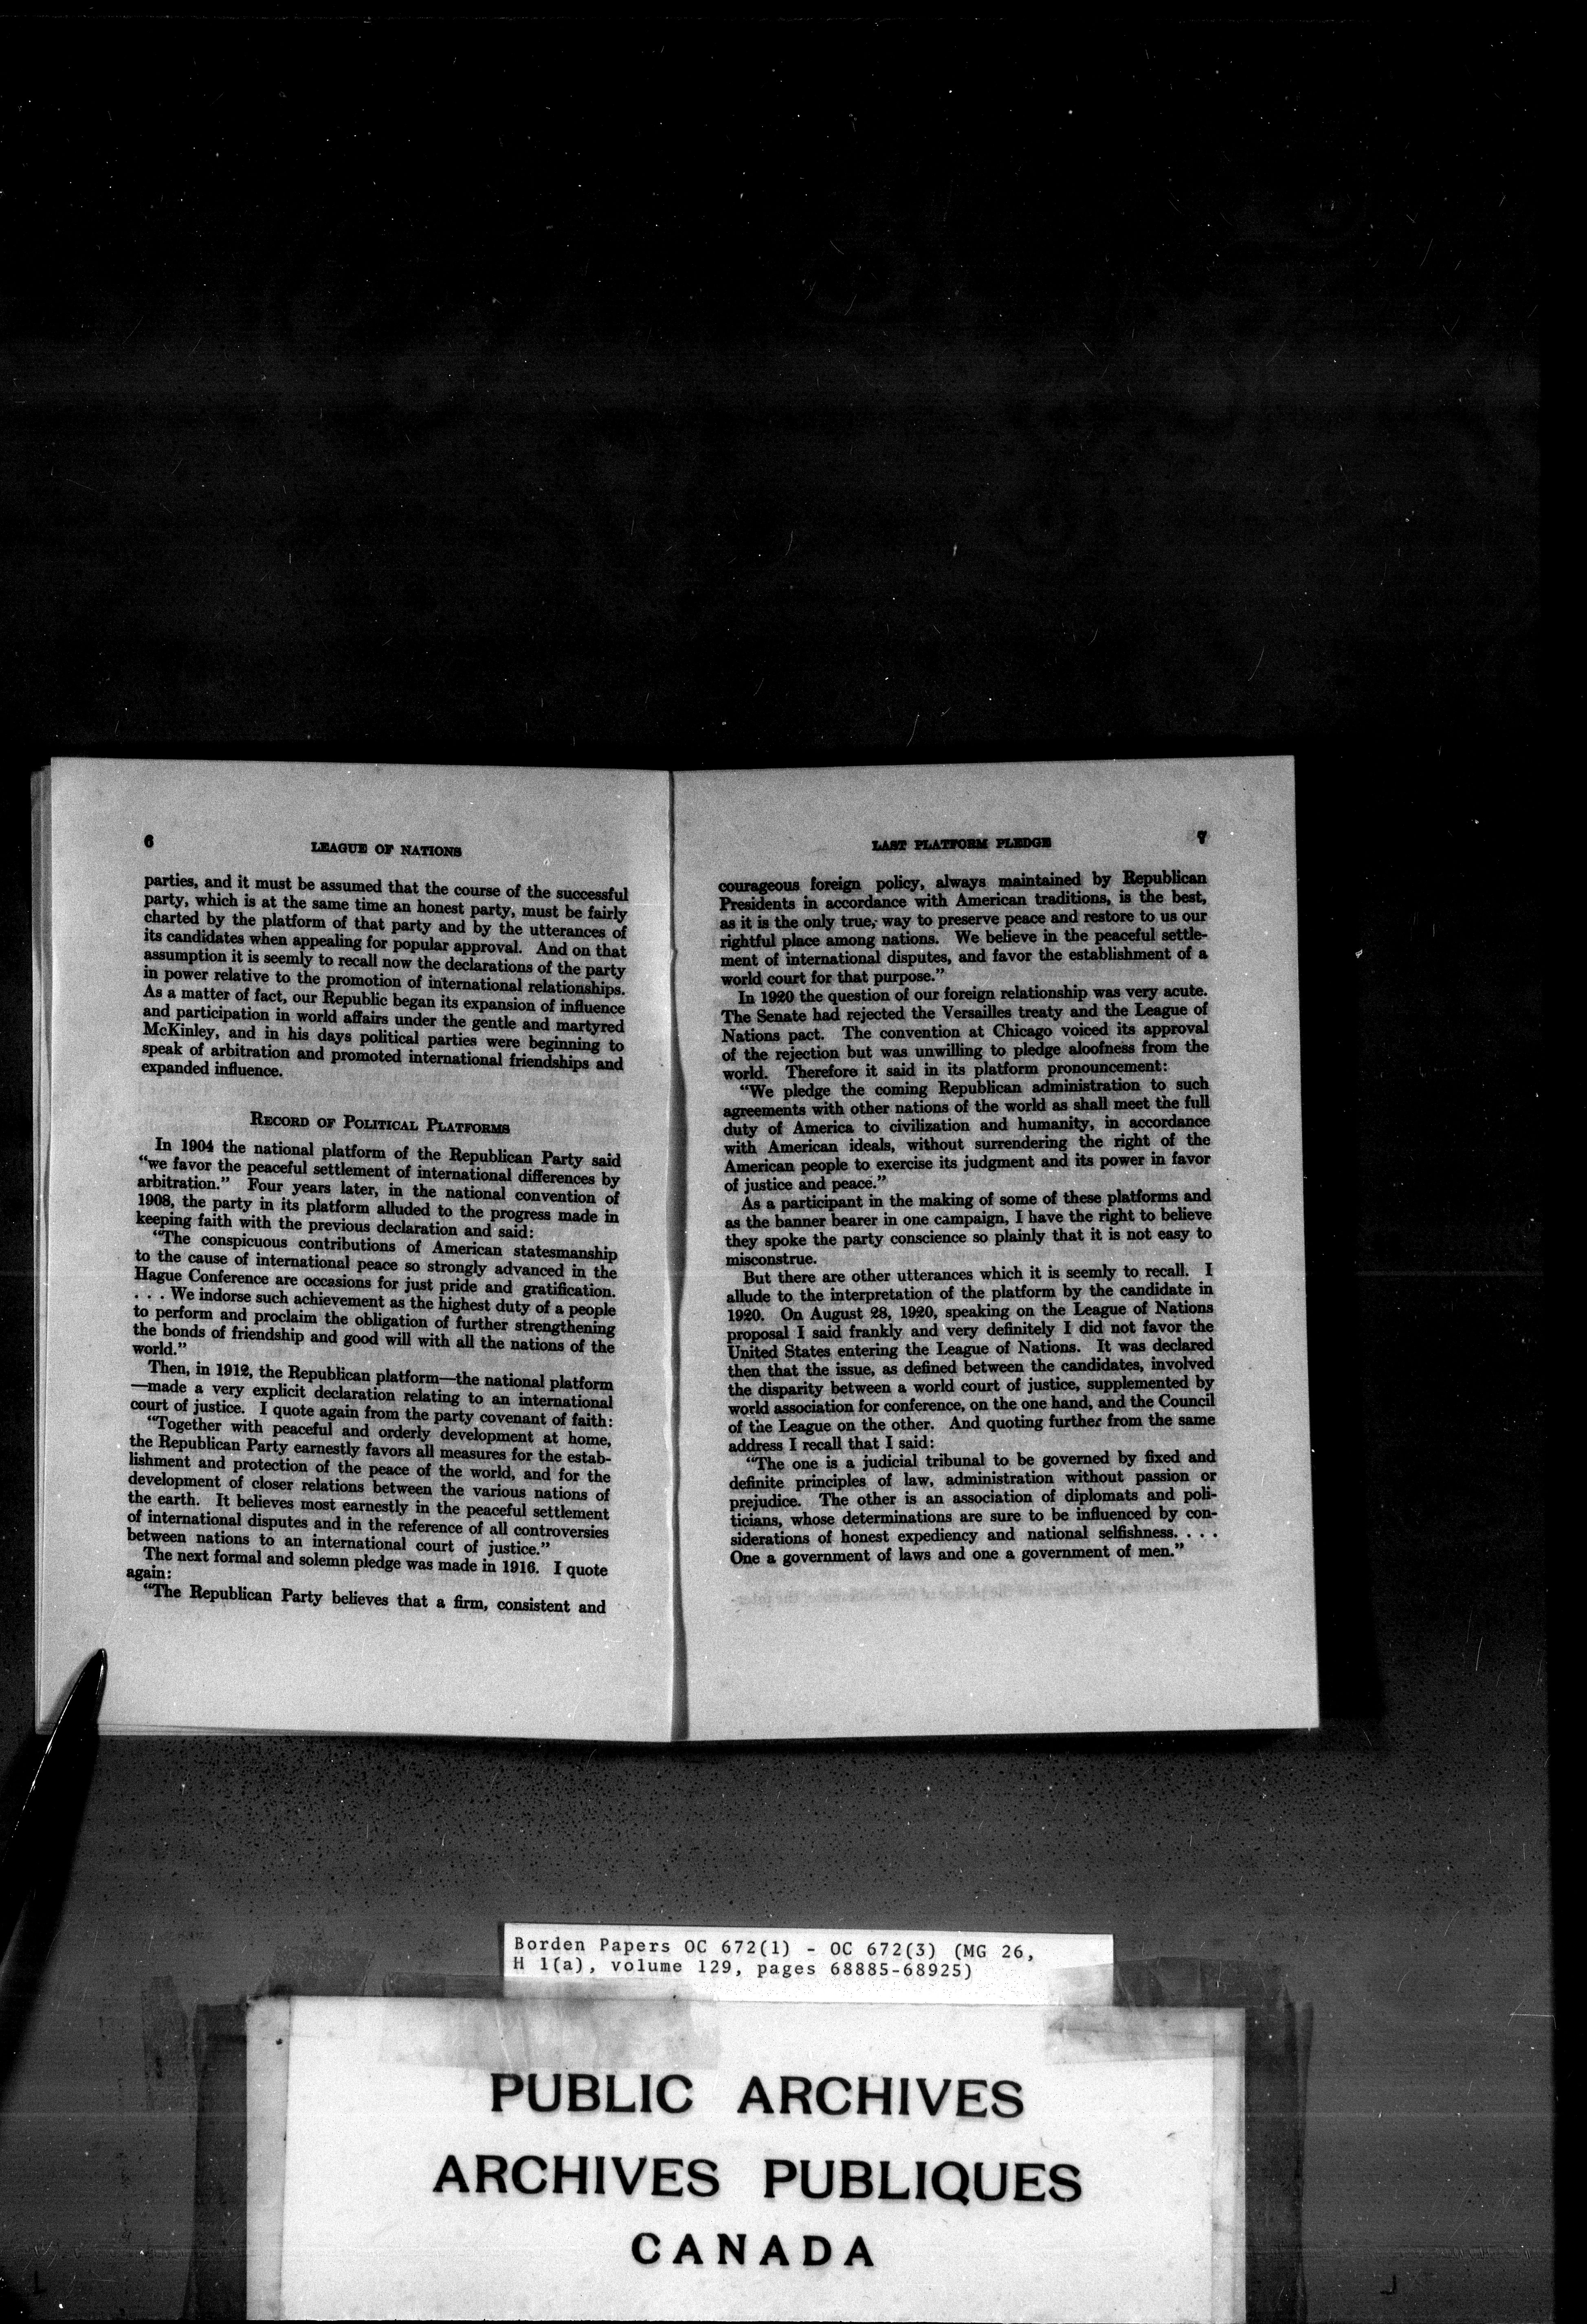 6
LEAGUE OF NATIONS
parties, and it must be assumed that the course of the successful
party, which is at the same time an honest party, must be fairly
charted by the platform of that party and by the utterances of
its candidates when appealing for popular approval. And on that
assumption it is seemly to recall now the declarations of the party
in power relative to the promotion of international relationships.
As a matter of fact, our Republic began its expansion of influence
and participation in world affairs under the gentle and martyred
McKinley, and in his days political parties were beginning to
speak of arbitration and promoted international friendships and
expanded influence.
RECORD OF POLITICAL PLATFORMS
In 1904 the national platform of the Republican Party said
"we favor the peaceful settlement of international differences by
arbitration." Four years later, in the national convention of
1908, the party in its platform alluded to the progress made in
keeping faith with the previous declaration and said:
"The conspicuous contributions of American statesmanship
to the cause of international peace so strongly advanced in the
Hague Conference are occasions for just pride and gratification.
. . . We indorse such achievement as the highest duty of a people
to perform and proclaim the obligation of further strengthening
the bonds of friendship and good will with all the nations of the
world."
Then, in 1912, the Republican platform—the national platform
—made a very explicit declaration relating to an international
court of justice. I quote again from the party covenant of faith:
"Together with peaceful and orderly development at home,
the Republican Party earnestly favors all measures for the estab-
lishment and protection of the peace of the world, and for the
development of closer relations between the various nations of
the earth. It believes most earnestly in the peaceful settlement
of international disputes and in the reference of all controversies
between nations to an international court of justice."
The next formal and solemn pledge was made in 1916. I quote
again:
"The Republican Party believes that a firm, consistent and
LAST PLATFORM PLEDGE
7
courageous foreign policy, always maintained by Republican
Presidents in accordance with American traditions, is the best,
as it is the only true, way to preserve peace and restore to us our
rightful place among nations. We believe in the peaceful settle-
ment of international disputes, and favor the establishment of a
world court for that purpose."
In 1920 the question of our foreign relationship was very acute.
The Senate had rejected the Versailles treaty and the League of
Nations pact. The convention at Chicago voiced its approval
of the rejection but was unwilling to pledge aloofness from the
world. Therefore it said in its platform pronouncement:
"We pledge the coming Republican administration to such
agreements with other nations of the world as shall meet the full
duty of America to civilization and humanity, in accordance
with American ideals, without surrendering the right of the
American people to exercise its judgment and its power in favor
of justice and peace."
As a participant in the making of some of these platforms and
as the banner bearer in one campaign, I have the right to believe
they spoke the party conscience so plainly that it is not easy to
misconstrue.
But there are other utterances which it is seemly to recall. I
allude to the interpretation of the platform by the candidate in
1920. On August 28, 1920, speaking on the League of Nations
proposal I said frankly and very definitely I did not favor the
United States entering the League of Nations. It was declared
then that the issue, as defined between the candidates, involved
the disparity between a world court of justice, supplemented by
world association for conference, on the one hand, and the Council
of the League on the other. And quoting further from the same
address I recall that I said:
"The one is a judicial tribunal to be governed by fixed and
definite principles of law, administration without passion or
prejudice. The other is an association of diplomats and poli-
ticians, whose determinations are sure to be influenced by con-
siderations of honest expediency and national selfishness. . . .
One a government of laws and one a government of men."
Borden Papers OC 672(1) - OC 672(3) (MG 26,
H 1(a), volume 129, pages 68885-68925)
PUBLIC ARCHIVES
ARCHIVES PUBLIQUES
CANADA